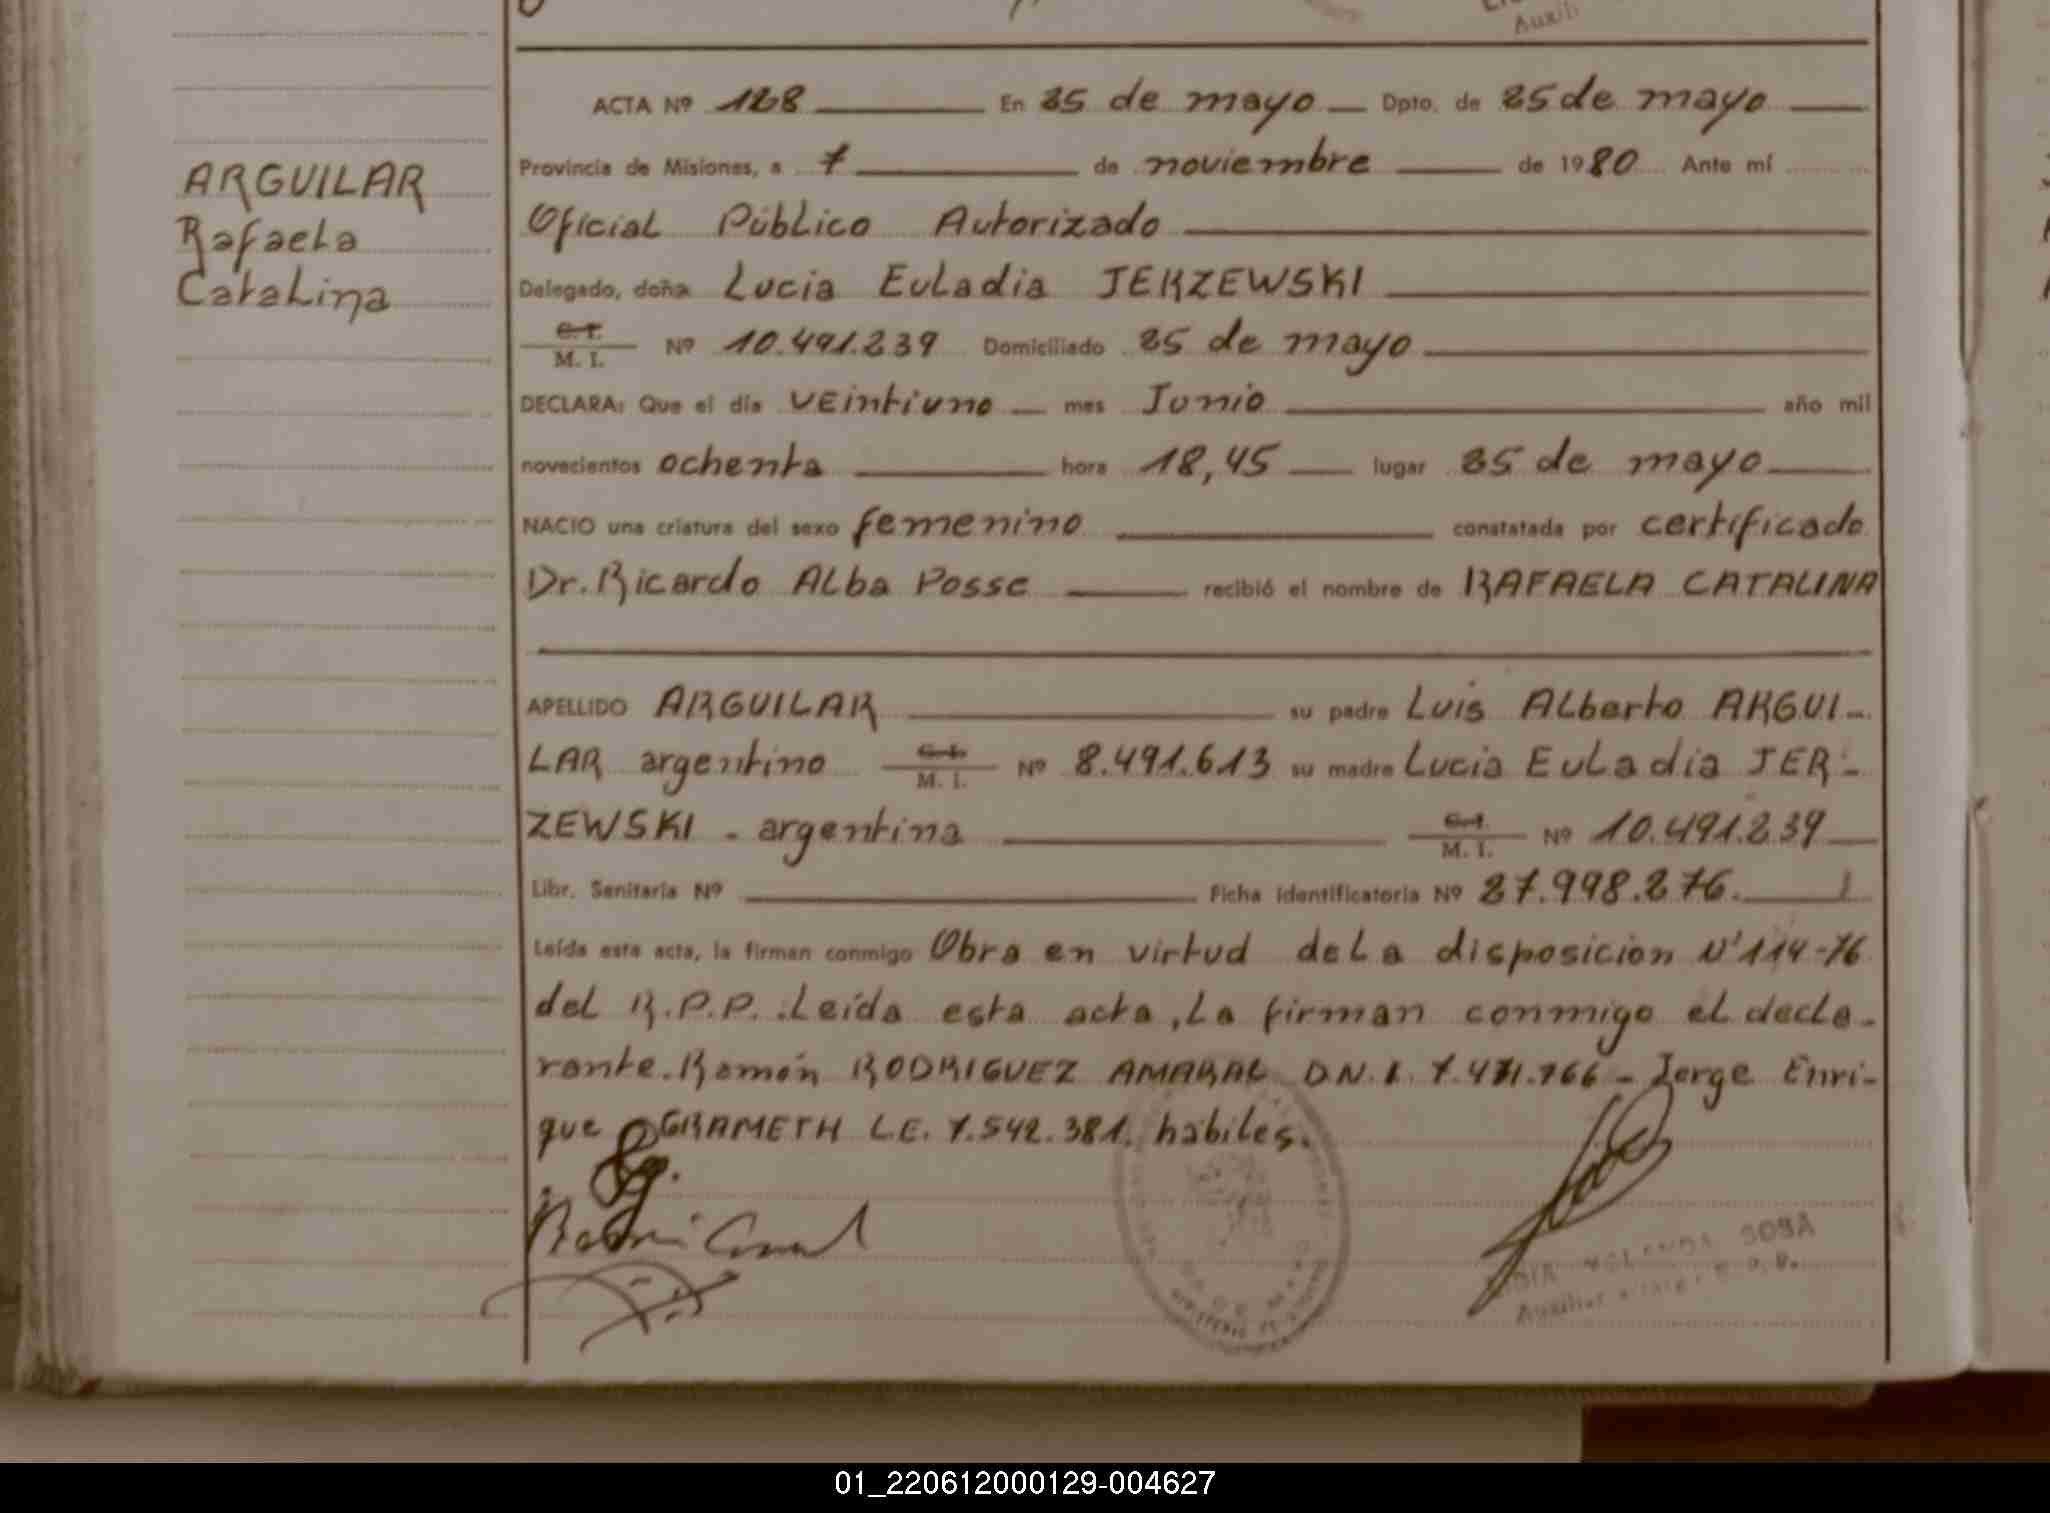 Auxili
ACTA Nº 128 En 25 de mayo Dpto. de 25 de mayo
Provincia de Misiones, a 7 de noviembre de 1980 Ante mí
ARGUILAR
Rafaela
Catalina
Oficial Público Autorizado
Delegado, doña Lucia Euladia JERZEWSKI
C.I.
M. I. Nº 10.491.239 Domiciliado 25 de mayo
DECLARA: Que el día veintiuno mes Junio año mil
novecientos ochenta hora 18,45 lugar 25 de mayo
NACIO una criatura del sexo femenino constatada por certificado
Dr. Ricardo Alba Posse recibió el nombre de RAFAELA CATALINA
APELLIDO ARGUILAR su padre Luis Alberto ARGUI-
LAR argentino C.I. M. I. Nº 8.491.613 su madre Lucia Euladia JER-
ZEWSKI - argentina C.I. M. I. Nº 10.491.239
Libr. Sanitaria Nº Ficha identificatoria Nº 27.998.276.
Leída esta acta, la firman conmigo Obra en virtud de la disposicion Nº 114-76
del R.P.P. Leída esta acta, la firman conmigo el decla-
rante. Ramón RODRIGUEZ AMARAL D.N.I. 7.471.766 - Jorge Enri-
que GRAMETH L.E. 7.542.381. habiles.
SOSA
Auxiliar
01_220612000129-004627